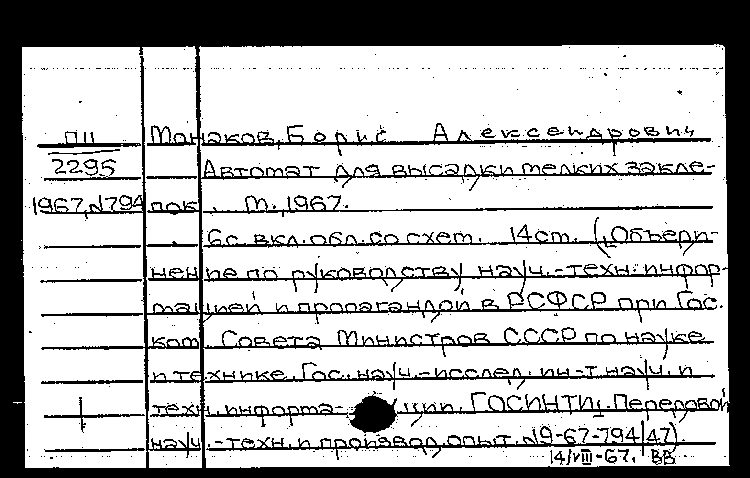 ПII Манаков, Борис Александрович
2295 Автомат для высадки мелких закле-
1967, №794 пок. М., 1967.
6с. вкл. обл. со схем. 14см. (Объеди-
нение по руководству науч.-техн. инфор-
мацией и пропагандой в РСФСР при Гос.
ком. Совета Министров СССР по науке
и технике. Гос. науч.-исслед. ин-т науч. и
техн. информа-ции. ГОСИНТИ. Передовой
науч.-техн. и производ. опыт. №9-67-794/47).
14/VIII-67. ВВ